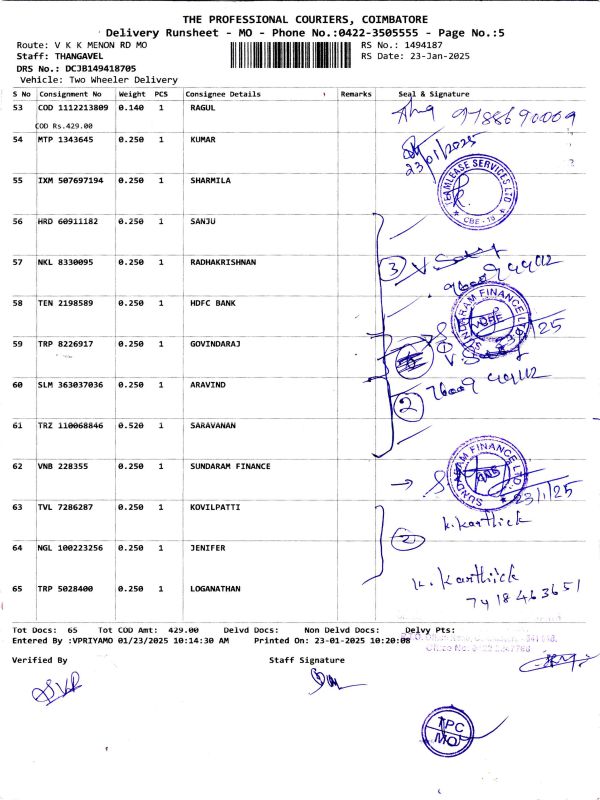 THE PROFESSIONAL COURIERS, COIMBATORE
Delivery Runsheet - MO - Phone No.:0422-3505555 - Page No.:5
Route: V K K MENON RD MO
RS No.: 1494187
Staff: THANGAVEL
RS Date: 23-Jan-2025
DRS No.: DCJB149418705
Vehicle: Two Wheeler Delivery
S No Consignment No Weight PCS Consignee Details Remarks Seal & Signature
53 COD 1112213809 0.140 1 RAGUL
9788690009
COD Rs.429.00
54 MTP 1343645 0.250 1 KUMAR
23/01/2025
55 IXM 507697194 0.250 1 SHARMILA
TEAMLEASE SERVICES LTD
CBE - 18
56 HRD 60911182 0.250 1 SANJU
57 NKL 8330095 0.250 1 RADHAKRISHNAN
3
58 TEN 2198589 0.250 1 HDFC BANK
SUNDARAM FINANCE LTD.
59 TRP 8226917 0.250 1 GOVINDARAJ
60 SLM 363037036 0.250 1 ARAVIND
2
61 TRZ 110068846 0.520 1 SARAVANAN
62 VNB 228355 0.250 1 SUNDARAM FINANCE
SUNDARAM FINANCE LTD.
23/1/25
63 TVL 7286287 0.250 1 KOVILPATTI
K. Karthick
64 NGL 100223256 0.250 1 JENIFER
2
65 TRP 5028400 0.250 1 LOGANATHAN
K. Karthick
7418463651
Tot Docs: 65 Tot COD Amt: 429.00 Delvd Docs: Non Delvd Docs: Delvy Pts:
Entered By :VPRIYAMO 01/23/2025 10:14:30 AM Printed On: 23-01-2025 10:20:08
Verified By
Staff Signature
TPC
MO